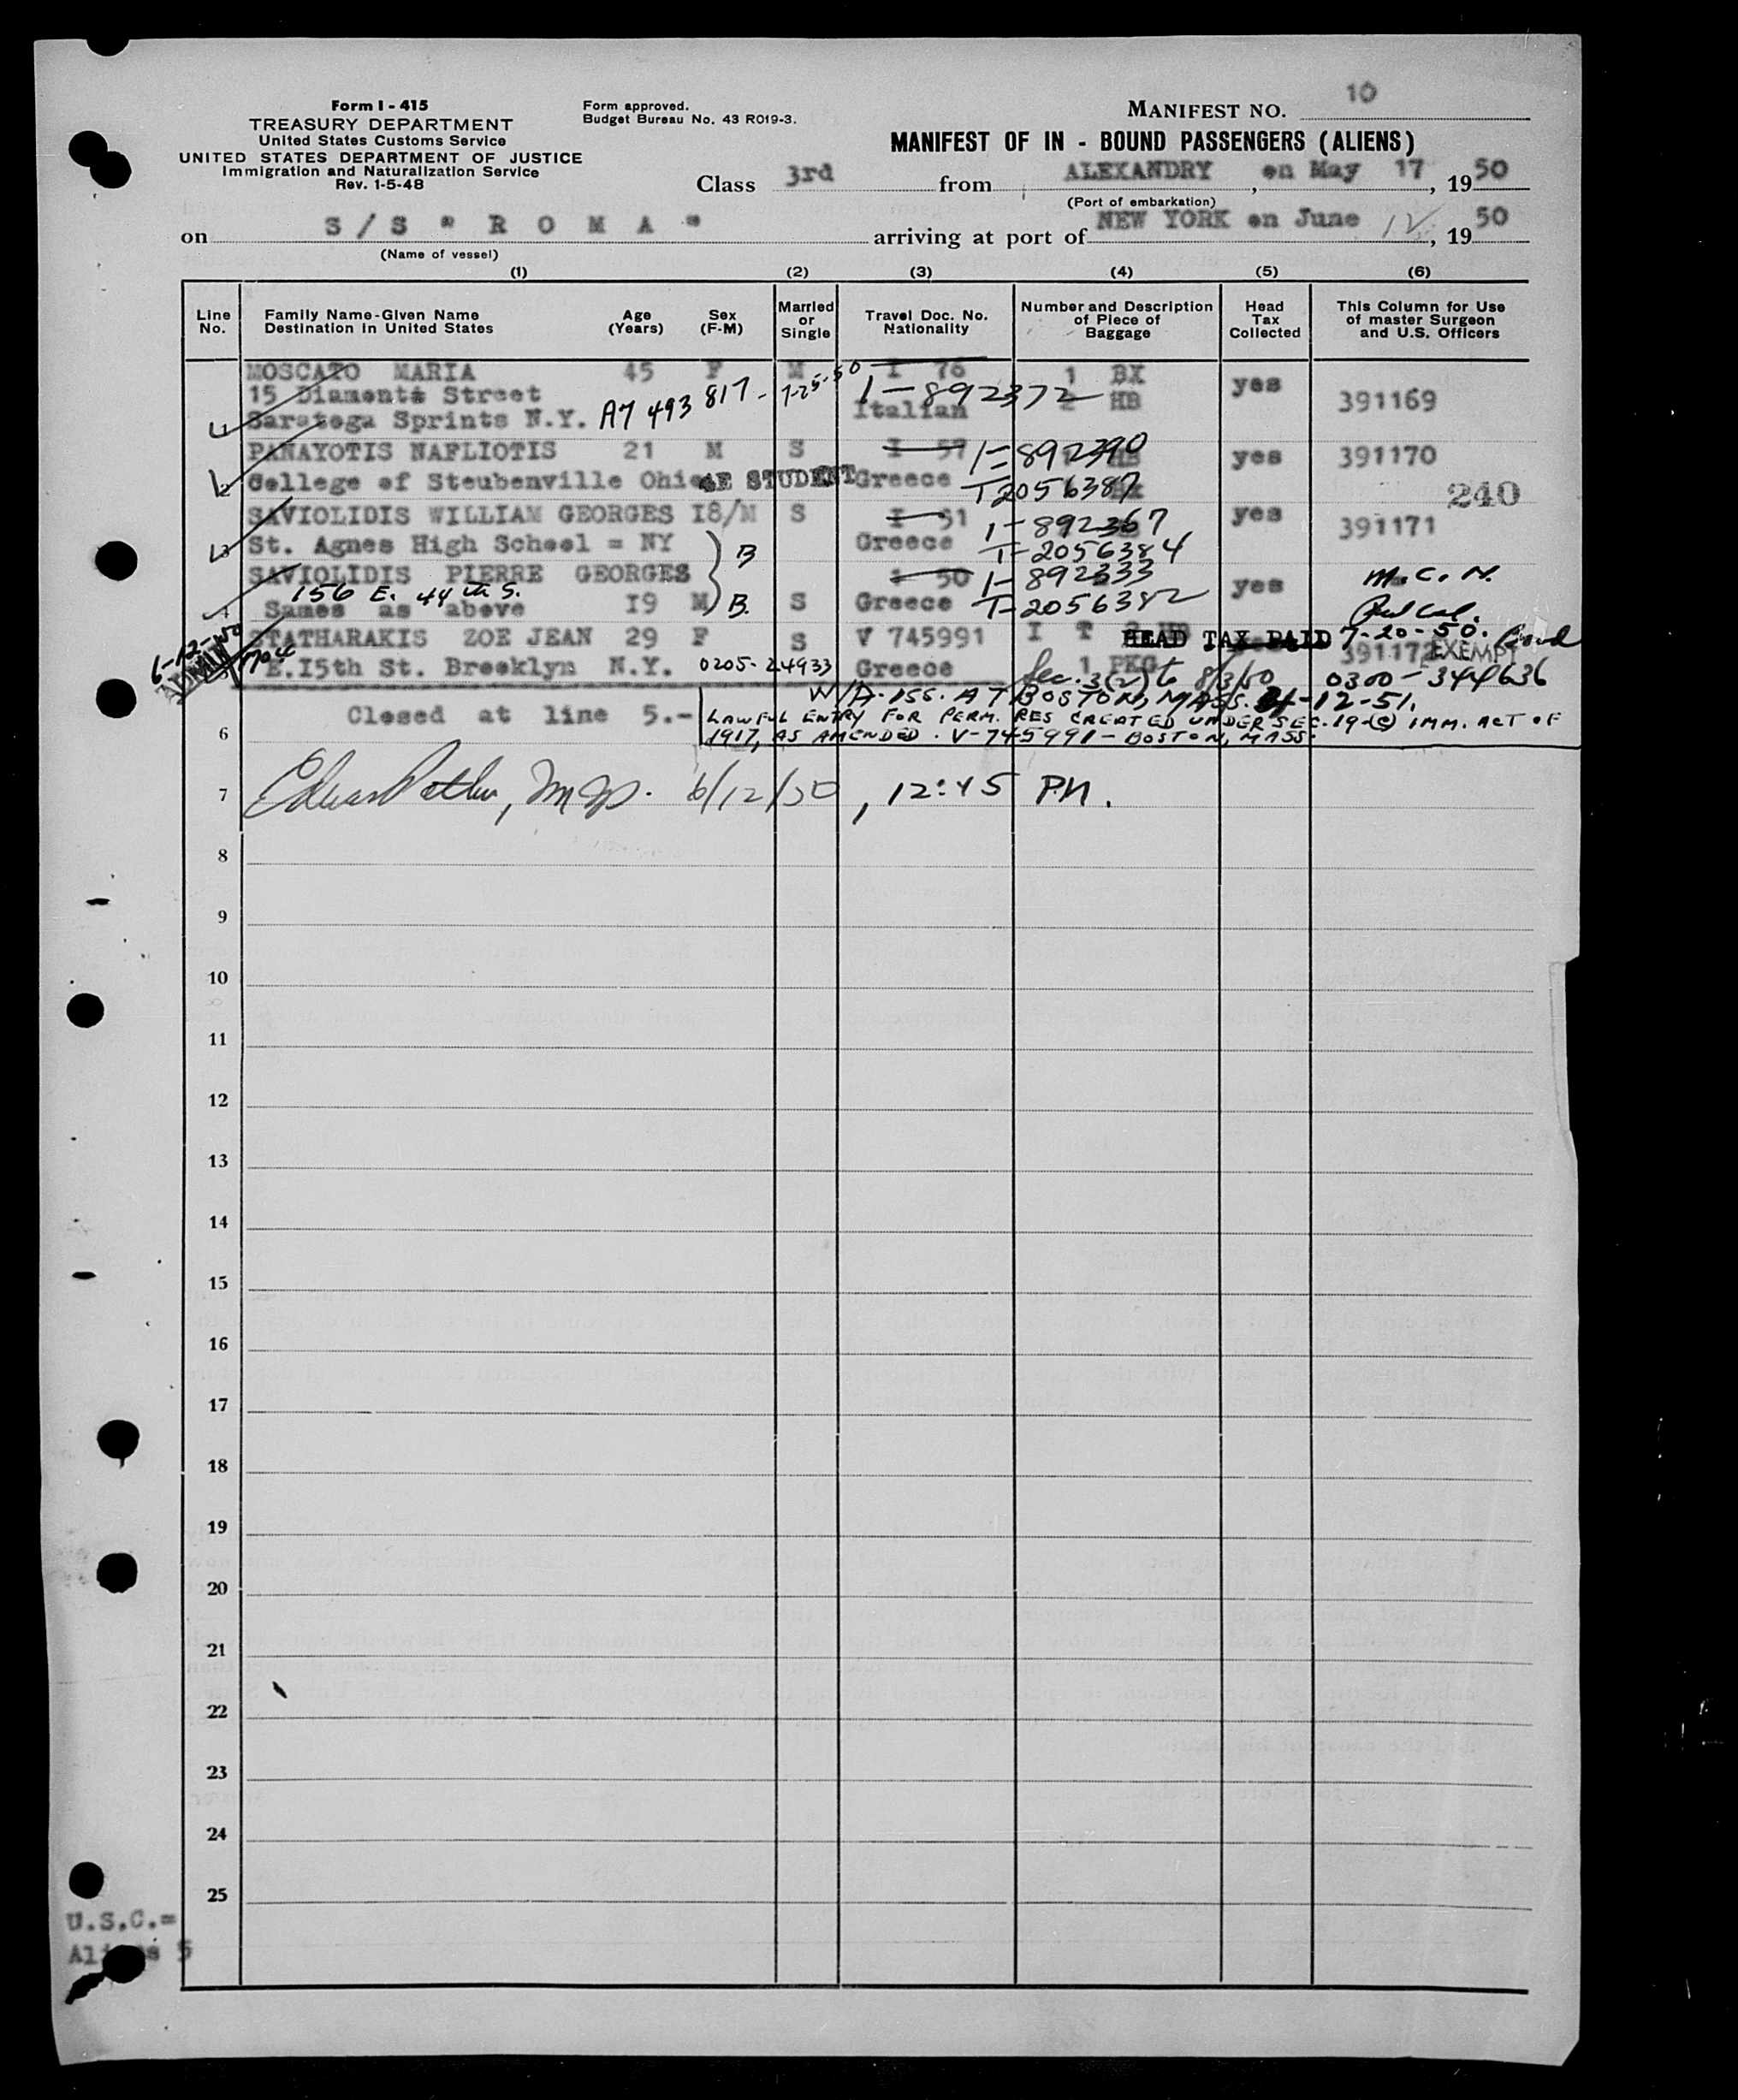 Form I - 415
TREASURY DEPARTMENT
United States Customs Service
UNITED STATES DEPARTMENT OF JUSTICE
Immigration and Naturalization Service
Rev. 1-5-48
Form approved.
Budget Bureau No. 43 R019-3.
MANIFEST NO. 10
MANIFEST OF IN - BOUND PASSENGERS (ALIENS)
Class 3rd from ALEXANDRY, on May 17, 1950
(Port of embarkation)
on S/S "ROMA" arriving at port of NEW YORK on June 12, 1950
(Name of vessel)
(1) (2) (3) (4) (5) (6)
Line No. Family Name-Given Name Destination in United States Age (Years) Sex (F-M) Married or Single Travel Doc. No. Nationality Number and Description of Piece of Baggage Head Tax Collected This Column for Use of master Surgeon and U.S. Officers
MOSCATO MARIA 45 F M I 76 1 BX yes 391169
15 Diamonte Street I-892372 2 HB
1 Saratoga Sprints N.Y. A7 493 817- 7-25-50 Italian
PANAYOTIS NAFLIOTIS 21 M S I 57 I-892390 HB yes 391170
2 College of Steubenville Ohio 4E STUDENT Greece T-2056387 240
SAVIOLIDIS WILLIAM GEORGES 18/M S I 51 I-892367 yes 391171
3 St. Agnes High School = NY B Greece T-2056384
SAVIOLIDIS PIERRE GEORGES I 50 I-892333 yes M.C.N.
156 E. 44th S.
4 Sames as above 19 M B. S Greece T-2056382
STATHARAKIS ZOE JEAN 29 F S V 745991 HEAD TAX PAID 7-20-50. 391172 EXEMPT
6-12-50 ADMIT
E.15th St. Brooklyn N.Y. 0205-24933 Greece 1 PKG Sec. 3(2) to 8/3/50 0300-344636
W/A-155. AT BOSTON, MASS. 4-12-51.
6 Closed at line 5.- LAWFUL ENTRY FOR PERM. RES CREATED UNDER SEC. 19-(c) IMM. ACT OF
1917, AS AMENDED. V-745991-BOSTON, MASS.
7 6/12/50, 12:45 P.M.
8
9
10
11
12
13
14
15
16
17
18
19
20
21
22
23
24
25
U.S.C.=
Aliens 5